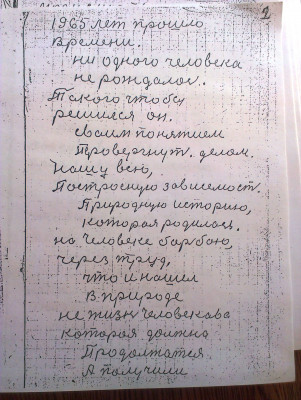 2
1965 лет прошло
времени.
ни одного человека
не рождалос.
Такого чтобы
решился он.
своим понятием
Провергнут. делом.
Нашу всю,
Построеную зависемост.
Природную историю,
которая родилас.
на человеке барбаю,
через труд,
что и нашел
в природе
не жизн человекава
которая должно
Продолжатся
А получили